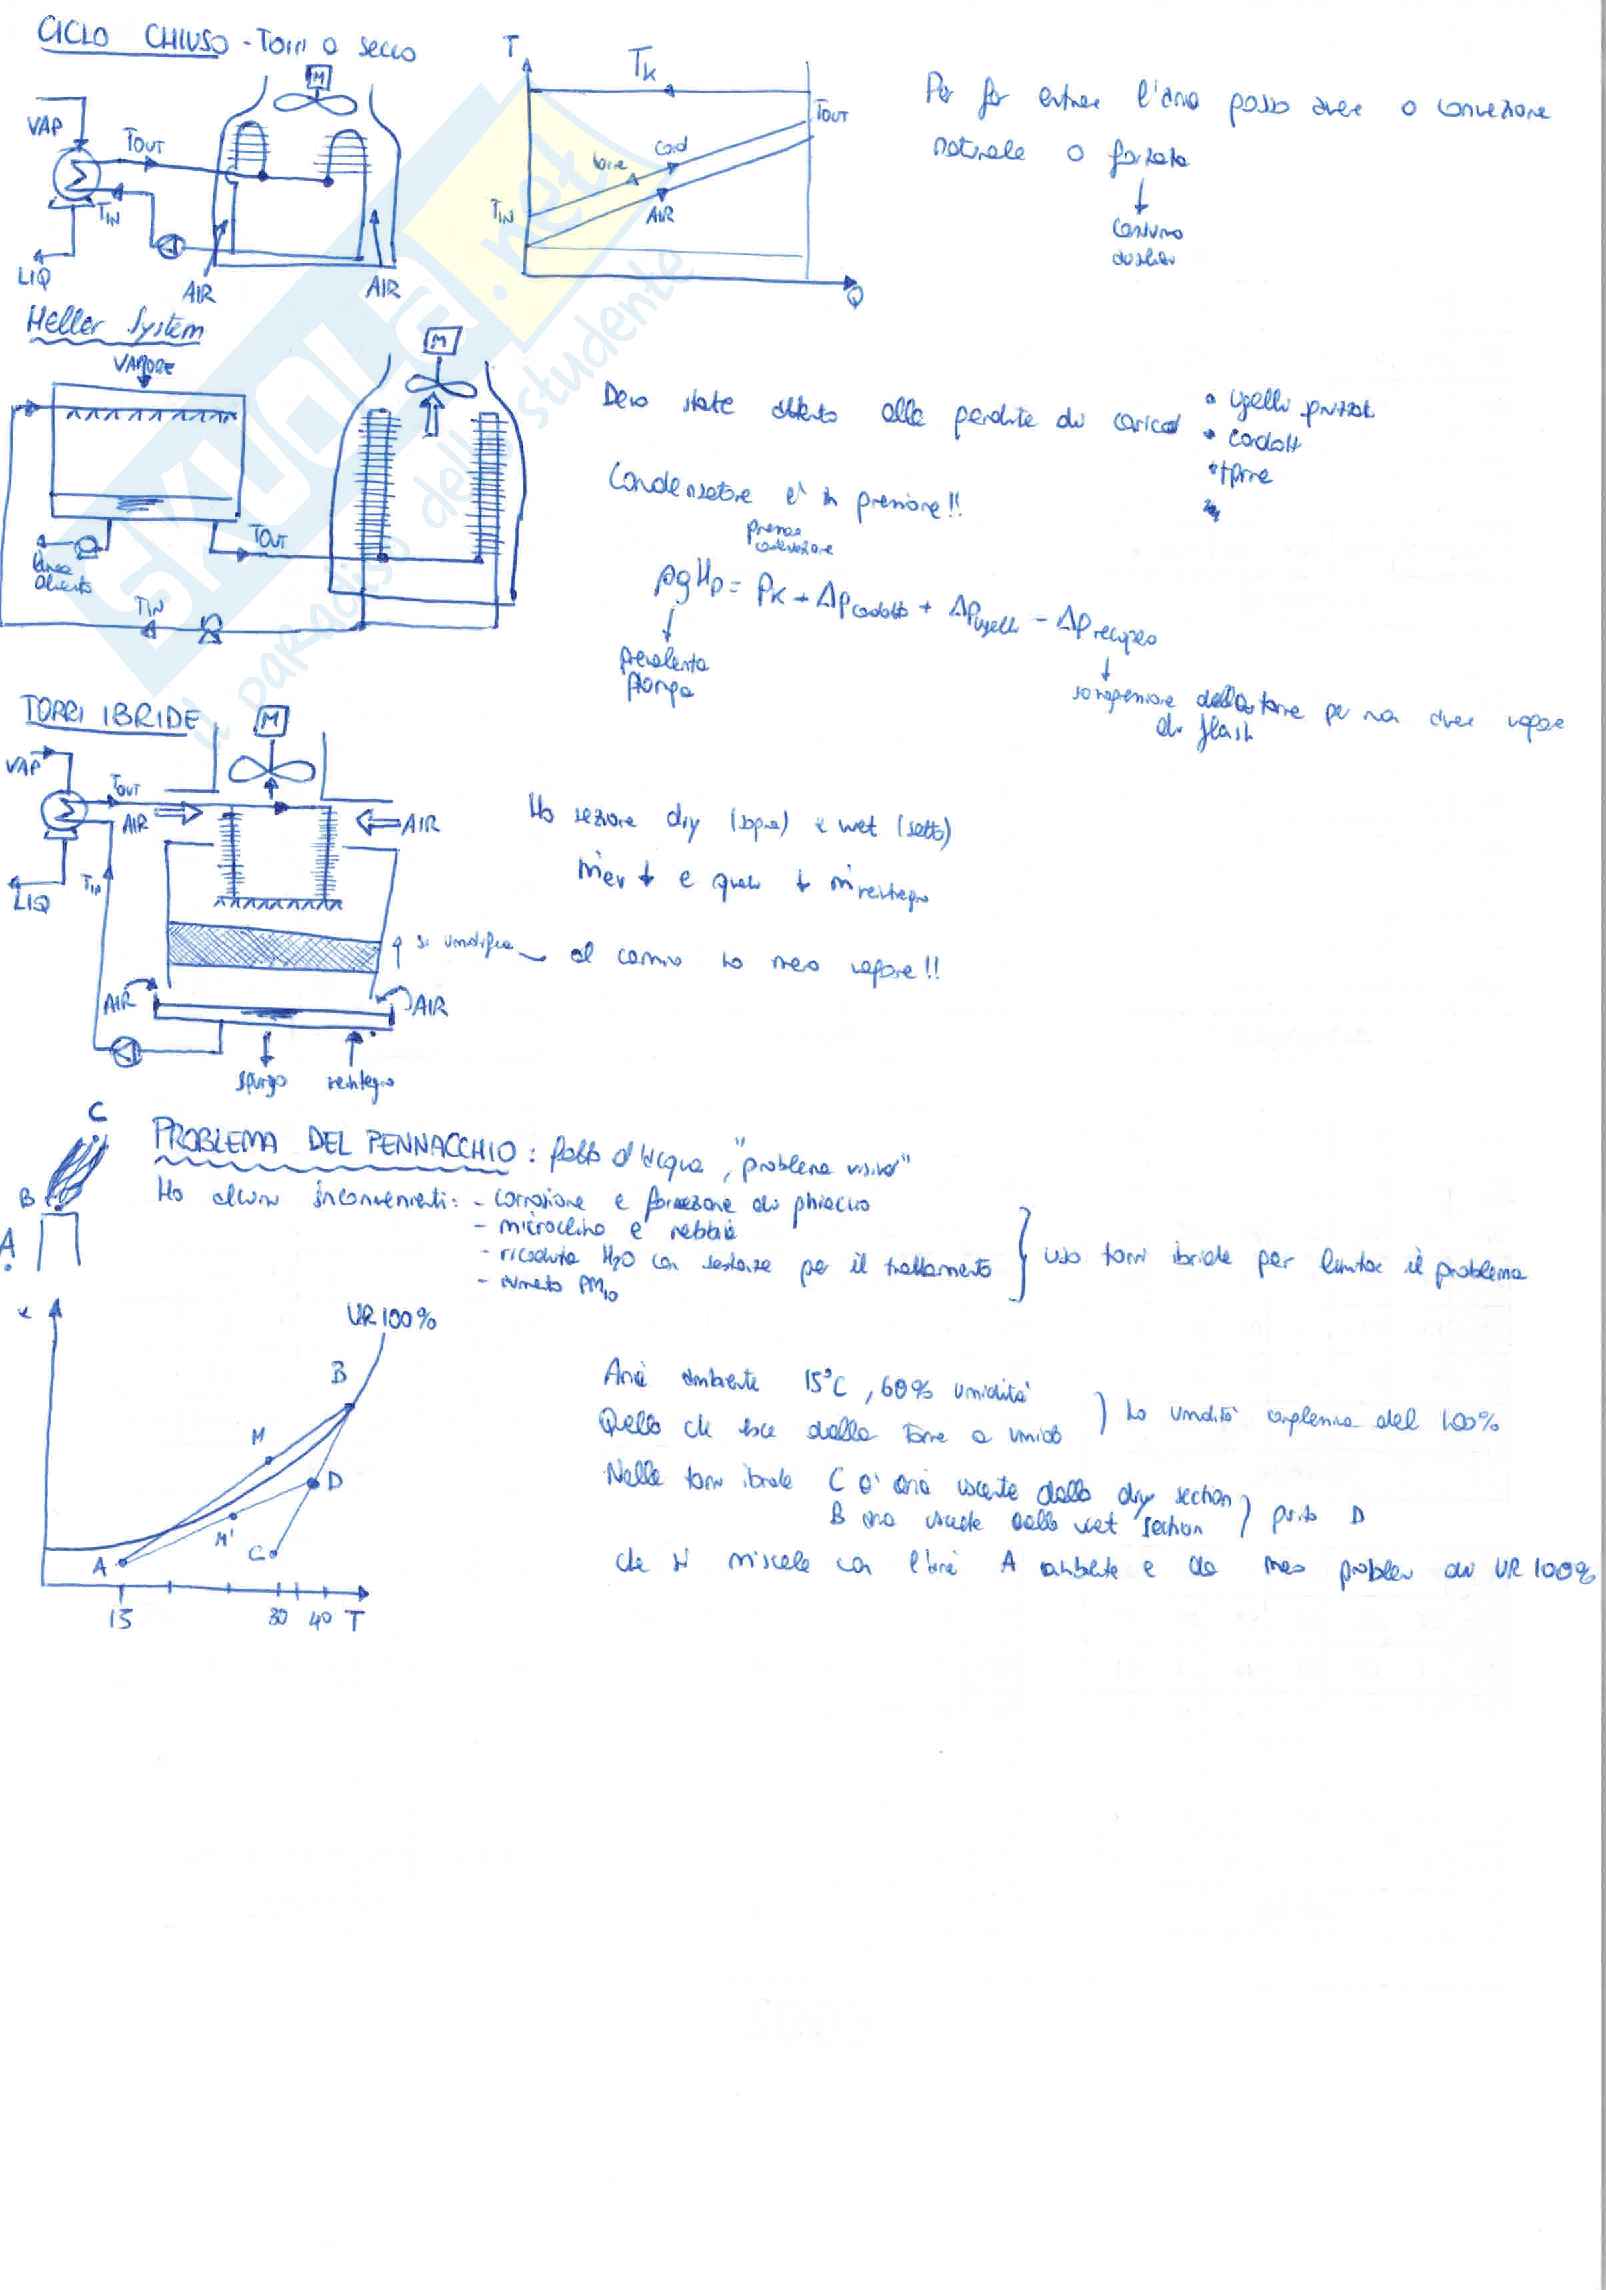 CICLO CHIUSO - Torri a secco
M
VAP
TOUT
TIN
LIQ
AIR
AIR
T
TK
TOUT
Cond
torre
TIN
AIR
Q
Per far entrare l'aria posso avere o convezione
naturale o forzata
consumo
ausiliari
Heller System
VAPORE
M
TOUT
linea
TIN
Devo stare attento alle perdite di carico
• ugelli spruzzat.
• condotti
• torre
Condensatore è in pressione!!
ρgHp = PK + Δpcondotto + Δpugelli - Δprecupero
prevalenza
pompa
della torre per non avere vapore
di flash
TORRI IBRIDE
M
VAP
TOUT
AIR
AIR
TIN
LIQ
AIR
AIR
spurgo
reintegro
Ho sezione dry (sopra) e wet (sotto)
ṁev ↓ e quindi ↓ ṁreintegro
si umidifica
al camino ho meno vapore!!
C
B
A
PROBLEMA DEL PENNACCHIO: fatto d'acqua, "problema visivo"
Ho alcuni inconvenienti: - corrosione e formazione di ghiaccio
- microclima e nebbia
- ricaduta H2O con sostanze per il trattamento
- aumento PM10
uso torri ibride per limitare il problema
x
UR 100%
B
M
D
M'
C
A
15
30
40
T
Aria ambiente 15°C, 60% umidità
Quello che esce dalla torre a umido
ho umidità del 100%
Nelle torri ibride C è aria uscente dalla dry section
B aria uscente dalla wet section
punto D
che si miscela con l'aria A ambiente e do meno problemi di UR 100%
SKUOLA.net
il paradiso dello studente